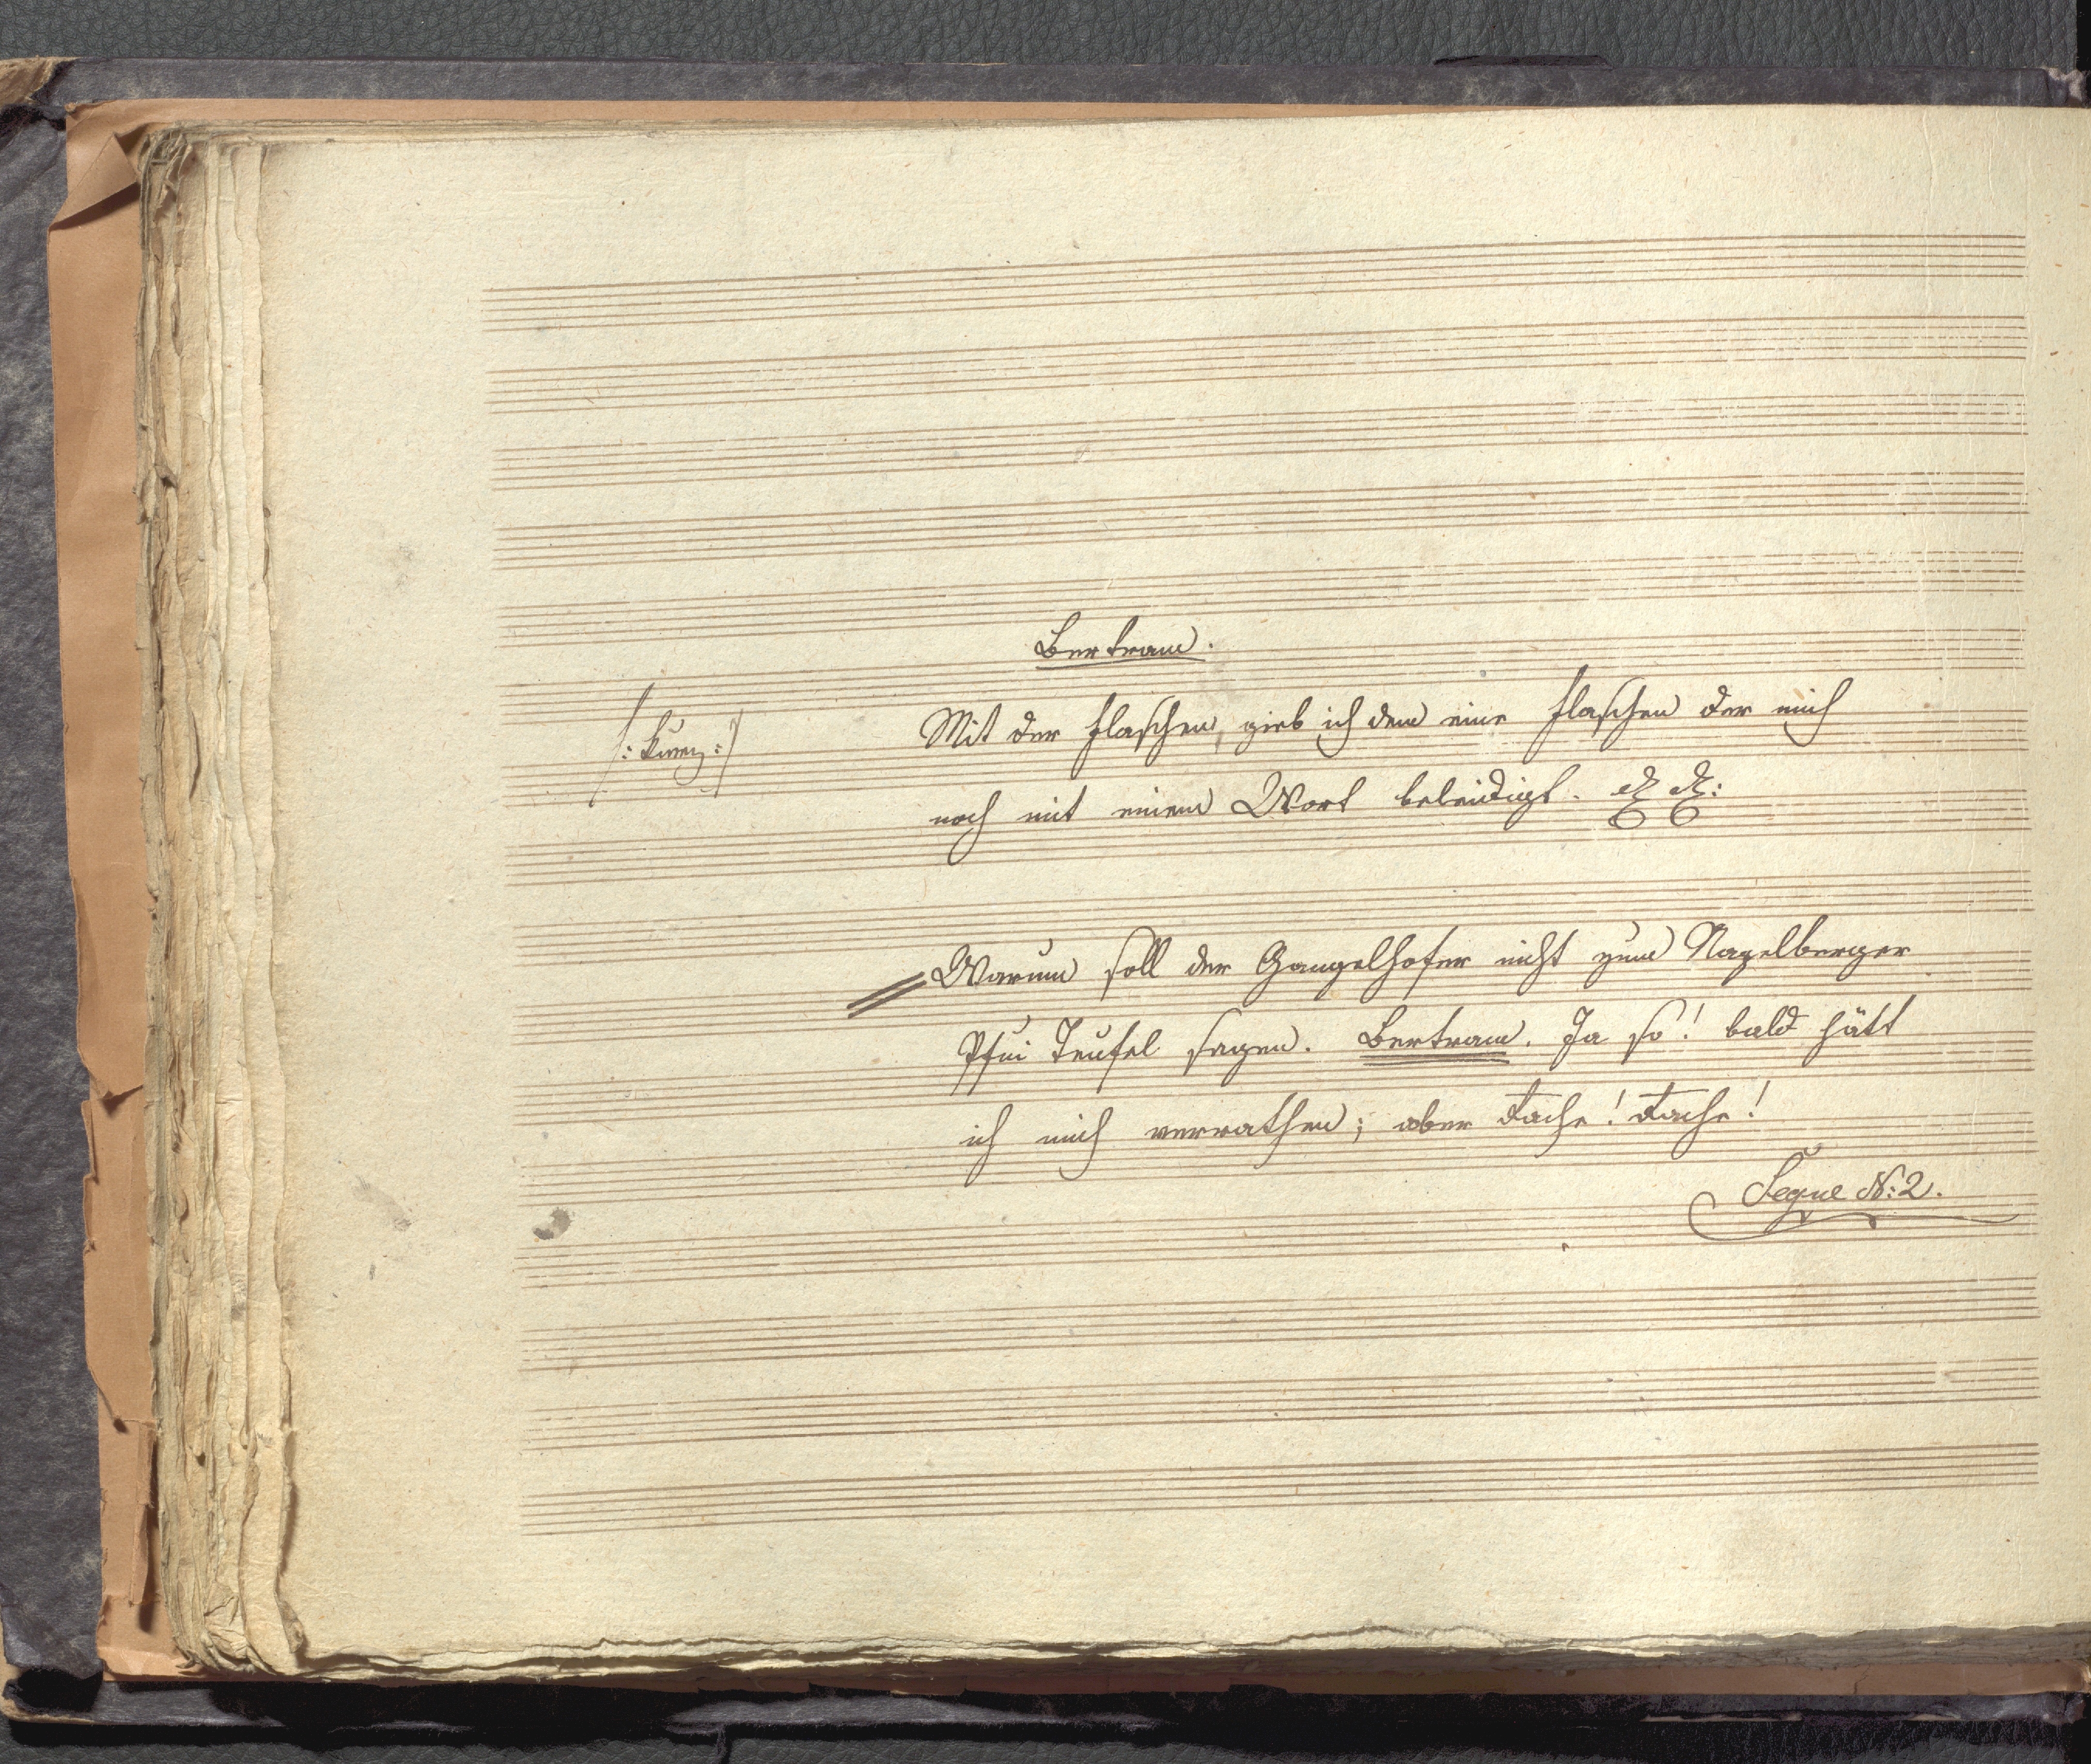 Bertram.
/: kurz :/
Mit der Flaschen, gieb ich dem eine Flaschen der mich
noch mit einem Wort beleidigt. etz etz:
Warum soll der Gangelhofer nicht zum Nagelberger
Pfui Teufel sagen. Bertram. Ja so! bald hätt
ich mich verrathen; aber Rache! Rache!
Segue No: 2.